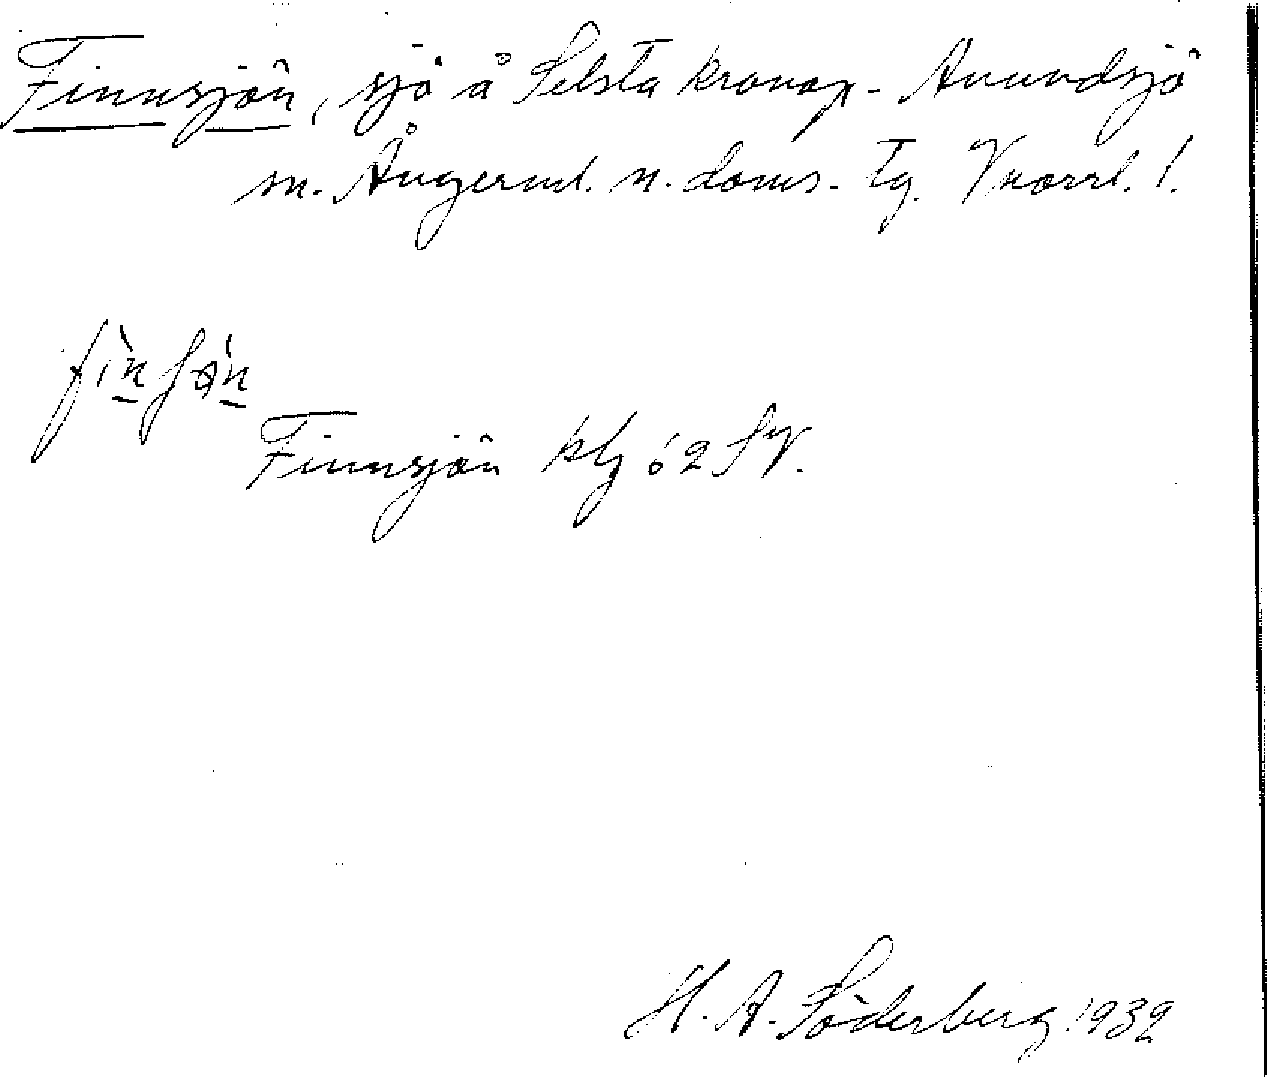 Finnsjön, sjö å Selsta kronop. Anundsjö
sn. Ångerml. n. doms. tg. Vnorrl. l.
Finnsjön kbg 62 SV.
H. A. Söderberg 1932